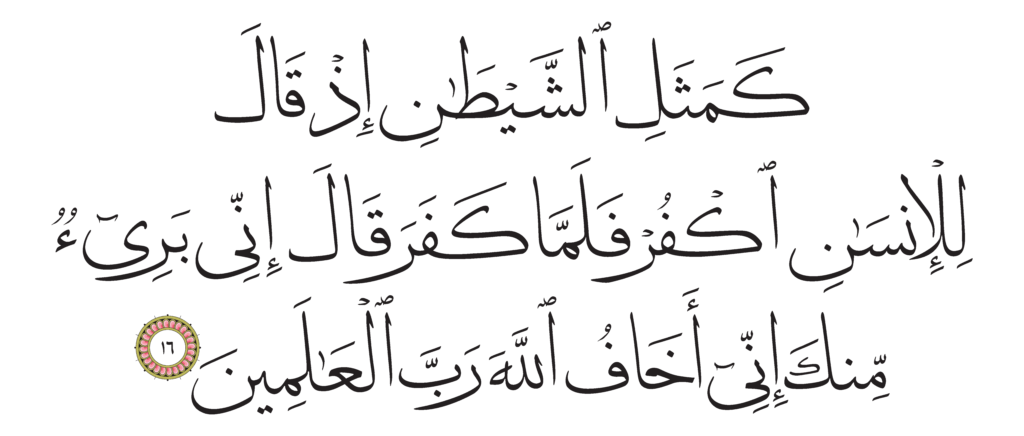 كَمَثَلِ ٱلشَّيْطَٰنِ إِذْ قَالَ
لِلْإِنسَٰنِ ٱكْفُرْ فَلَمَّا كَفَرَ قَالَ إِنِّى بَرِىٓءٌ
مِّنكَ إِنِّىٓ أَخَافُ ٱللَّهَ رَبَّ ٱلْعَٰلَمِينَ ١٦